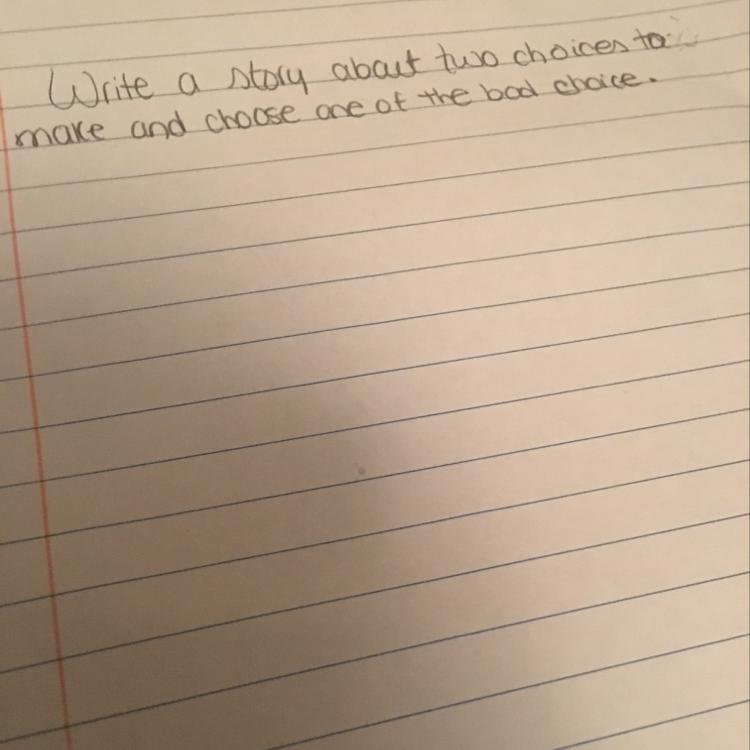 Write a story about two choices to
make and choose one of the bad choice.